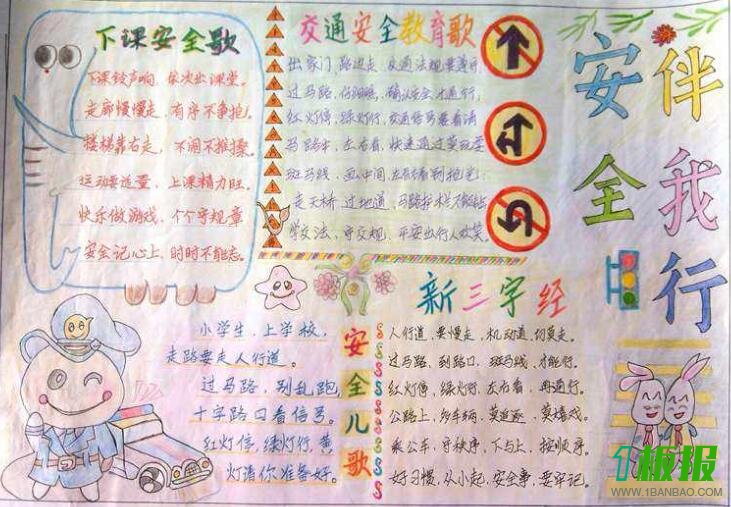 下课安全歌
下课铃声响，依次出课堂。
走廊慢慢走，有序不争抢。
楼梯靠右走，不闹不推搡。
运动要适量，上课精力旺。
快乐做游戏，个个守规章
安全记心上，时时不能忘。
交通安全教育歌
出家门，路边走，交通法规要遵守，
过马路，仔细瞧，确认安全才通行，
红灯停，绿灯行，交通信号要看清
马路中，左右看，快速通过莫玩耍
斑马线，画中间，左右看
走天桥，过地道，马路护栏不能钻
学交法，守交规，平安出行人欢笑。
安全伴我行
新三字经
人行道，要慢走，机动道，切莫走。
过马路，到路口，斑马线，才能行。
红灯停，绿灯行，左右看，再通行。
公路上，多车辆，莫追逐，莫嬉戏。
乘公车，守秩序，下与上，按顺序。
好习惯，从小起，安全事，要牢记。
安全儿歌
小学生，上学校，
走路要走人行道。
过马路，别乱跑，
十字路口看信号。
红灯停，绿灯行，黄
灯请你准备好。
1板报
WWW.1BANBAO.COM